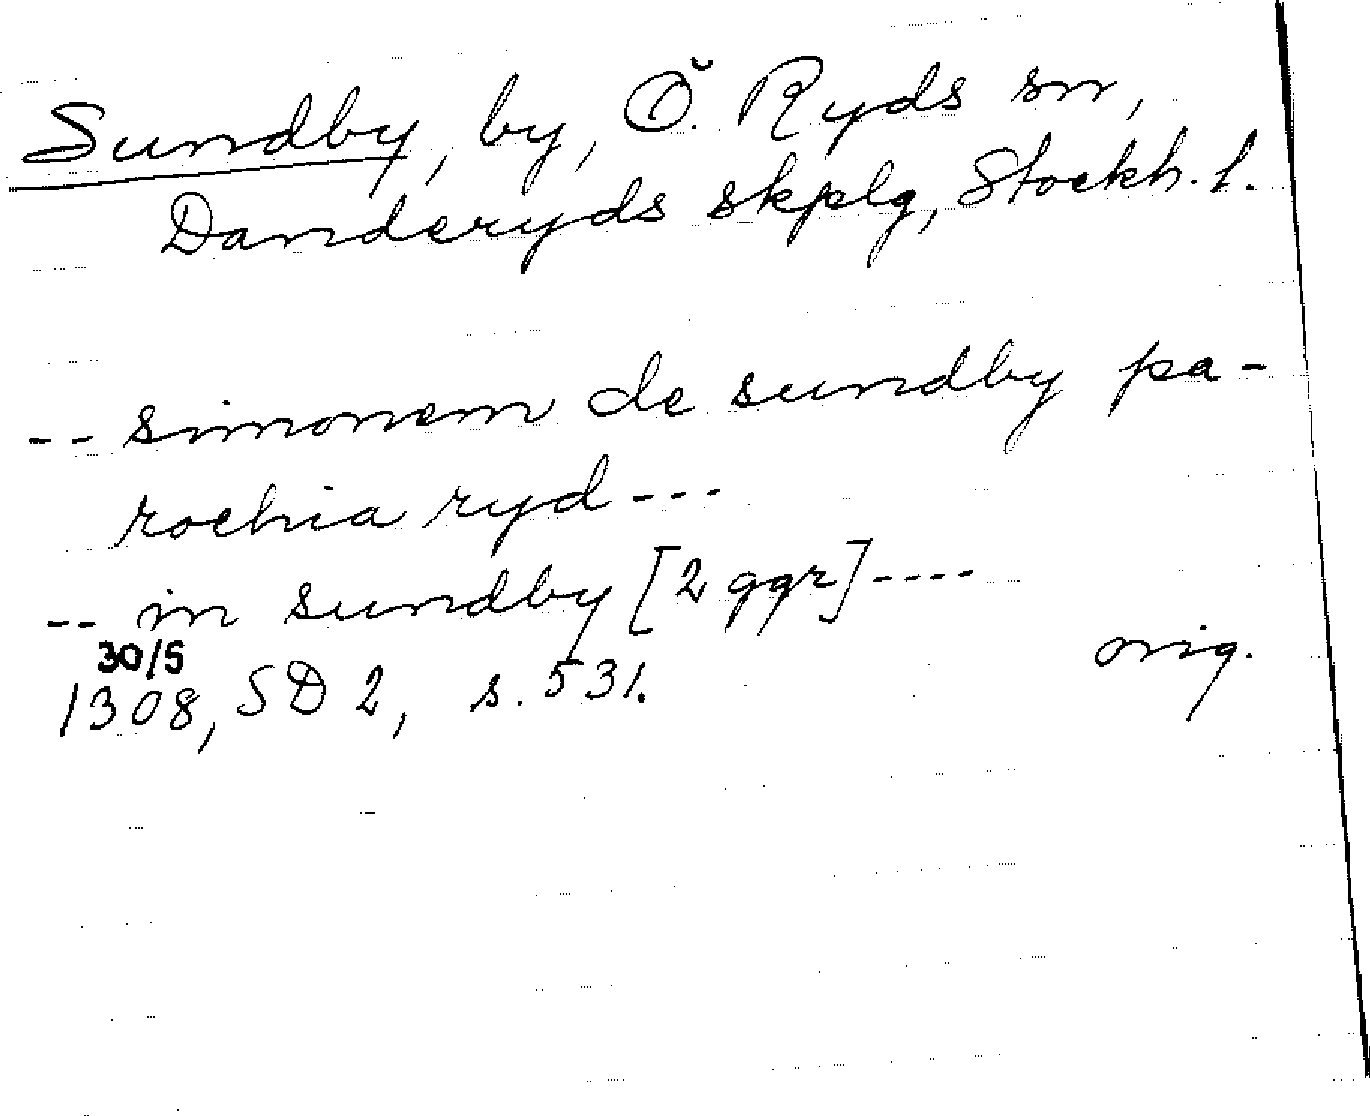 Sundby, by, Ö. Ryds sn,
Danderyds skplg, Stockh. l.
-- simonem de sundby pa-
rochia ryd ---
-- in sundby [2 ggr] ----
30/5
1308, SD 2, s. 531.
orig.